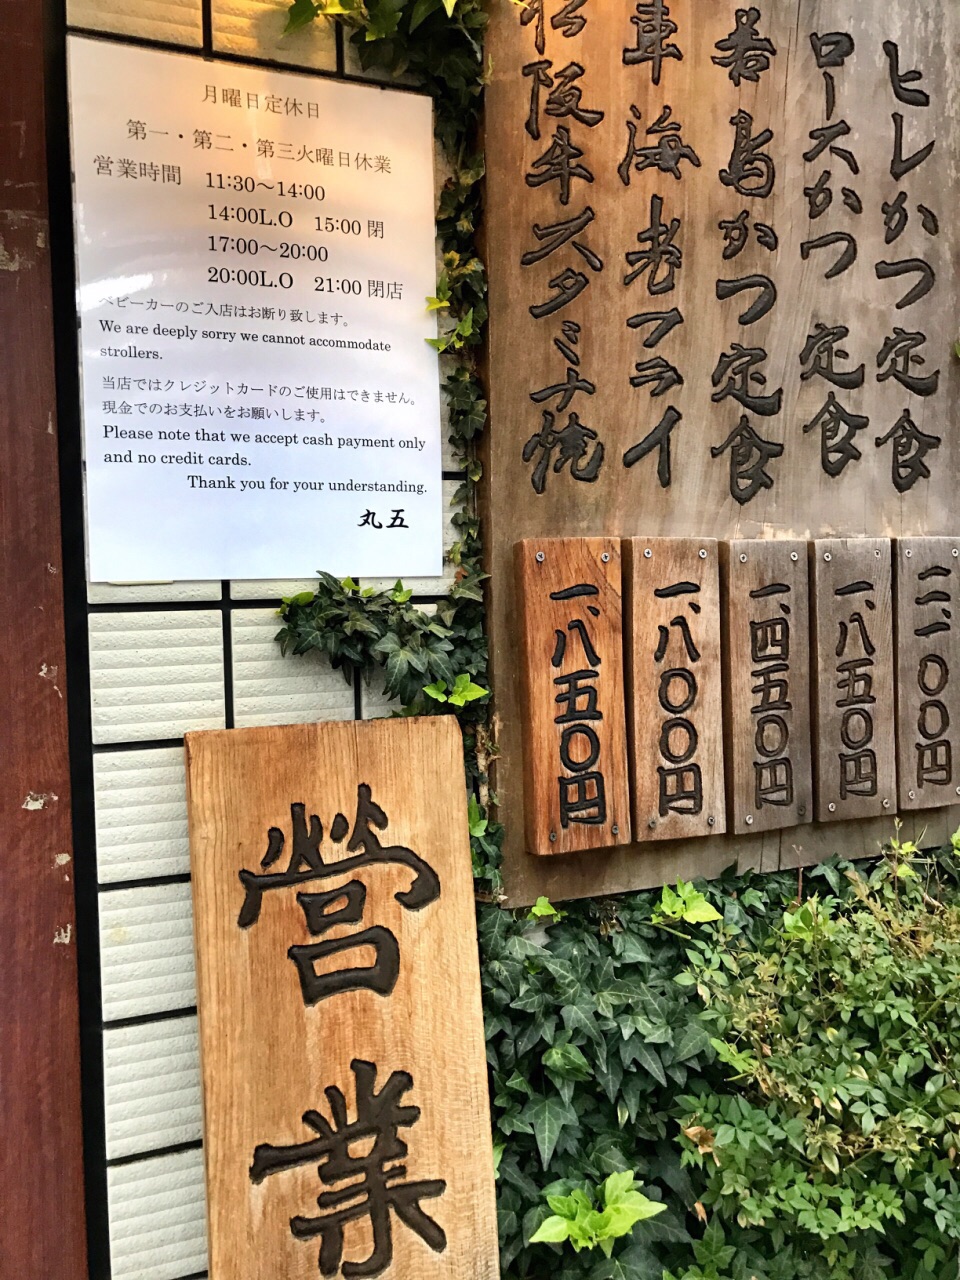 月曜日定休日
第一・第二・第三火曜日休業
営業時間 11:30〜14:00
14:00L.O 15:00 閉
17:00〜20:00
20:00L.O 21:00 閉店
ベビーカーのご入店はお断り致します。
We are deeply sorry we cannot accommodate
strollers.
当店ではクレジットカードのご使用はできません。
現金でのお支払いをお願いします。
Please note that we accept cash payment only
and no credit cards.
Thank you for your understanding.
丸五
ヒレかつ定食
二、一〇〇円
ロースかつ定食
一、八五〇円
若鳥かつ定食
一、四五〇円
車海老フライ
一、八〇〇円
松阪牛スタミナ焼
一、八五〇円
營業